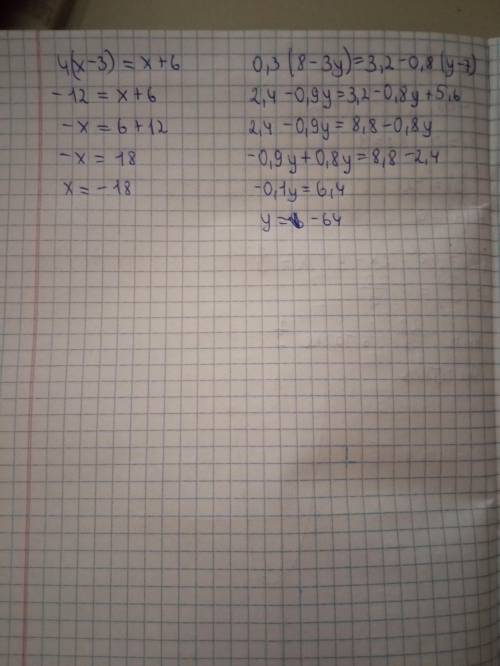 4(x-3) = x+6
-12 = x+6
-x = 6+12
-x = 18
x = -18
0,3 (8-3y)=3,2-0,8(y-7)
2,4-0,9y=3,2-0,8y+5,6
2,4-0,9y = 8,8-0,8y
-0,9y+0,8y=8,8-2,4
-0,1y = 6,4
y = -64